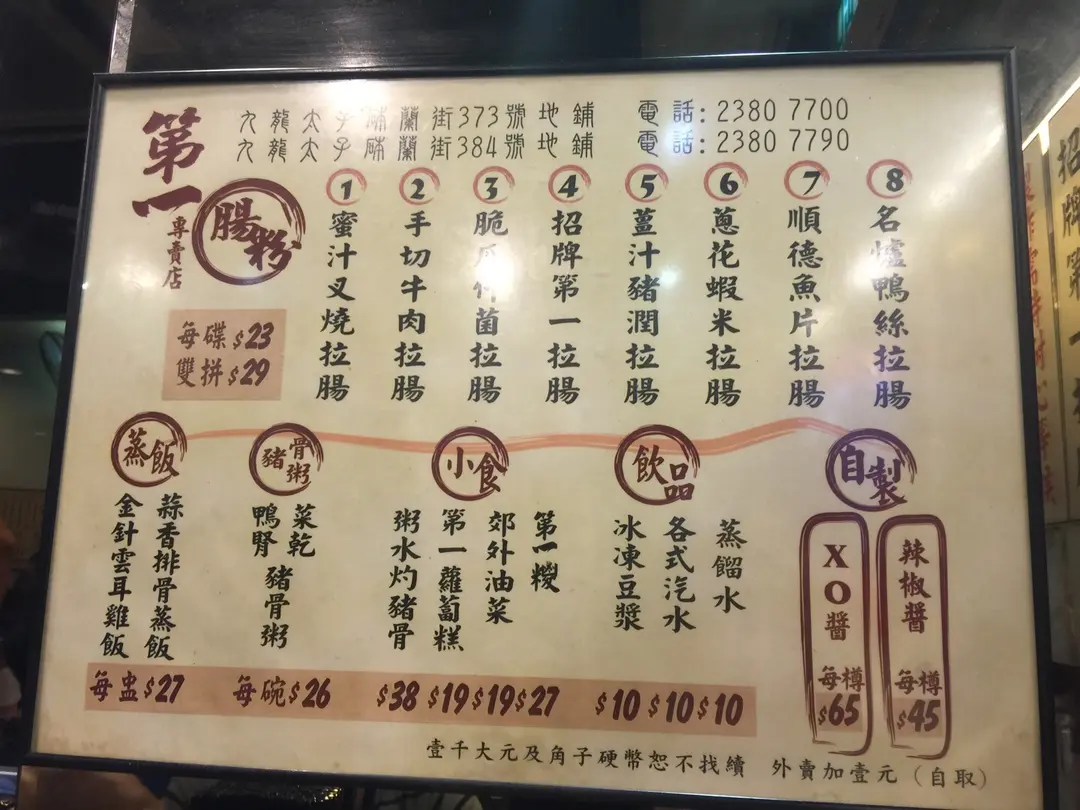 九龍太子砵蘭街373號地鋪 電話: 2380 7700
九龍太子砵蘭街384號地鋪 電話: 2380 7790
第一
腸粉
專賣店
每碟 $23
雙拼 $29
1 蜜汁叉燒拉腸
2 手切牛肉拉腸
3 脆瓜什菌拉腸
4 招牌第一拉腸
5 薑汁豬潤拉腸
6 蔥花蝦米拉腸
7 順德魚片拉腸
8 名爐鴨絲拉腸
蒸飯
蒜香排骨蒸飯
金針雲耳雞飯
每盅 $27
豬骨粥
菜乾
鴨腎
豬骨粥
每碗 $26
小食
粥水灼豬骨
第一蘿蔔糕
郊外油菜
第一糉
$38 $19 $19 $27
飲品
冰凍豆漿
各式汽水
蒸餾水
$10 $10 $10
自製
XO醬
每樽
$65
辣椒醬
每樽
$45
壹千大元及角子硬幣恕不找續 外賣加壹元（自取）
招牌第一